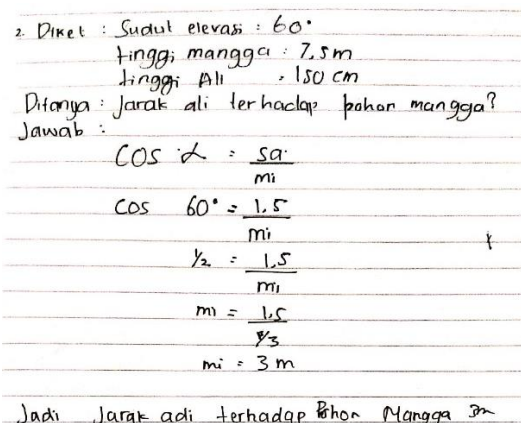 2. Diket : Sudut elevasi : 60°
tinggi mangga : 7,5m
tinggi Ali : 150 cm
Ditanya : Jarak ali terhadap pohon mangga?
Jawab :
COS α = sa
mi
COS 60° = 1.5
mi
1/2 = 1.5
mi
mi = 1.5
mi = 3 m
Jadi Jarak adi terhadap Pohon Mangga 3m